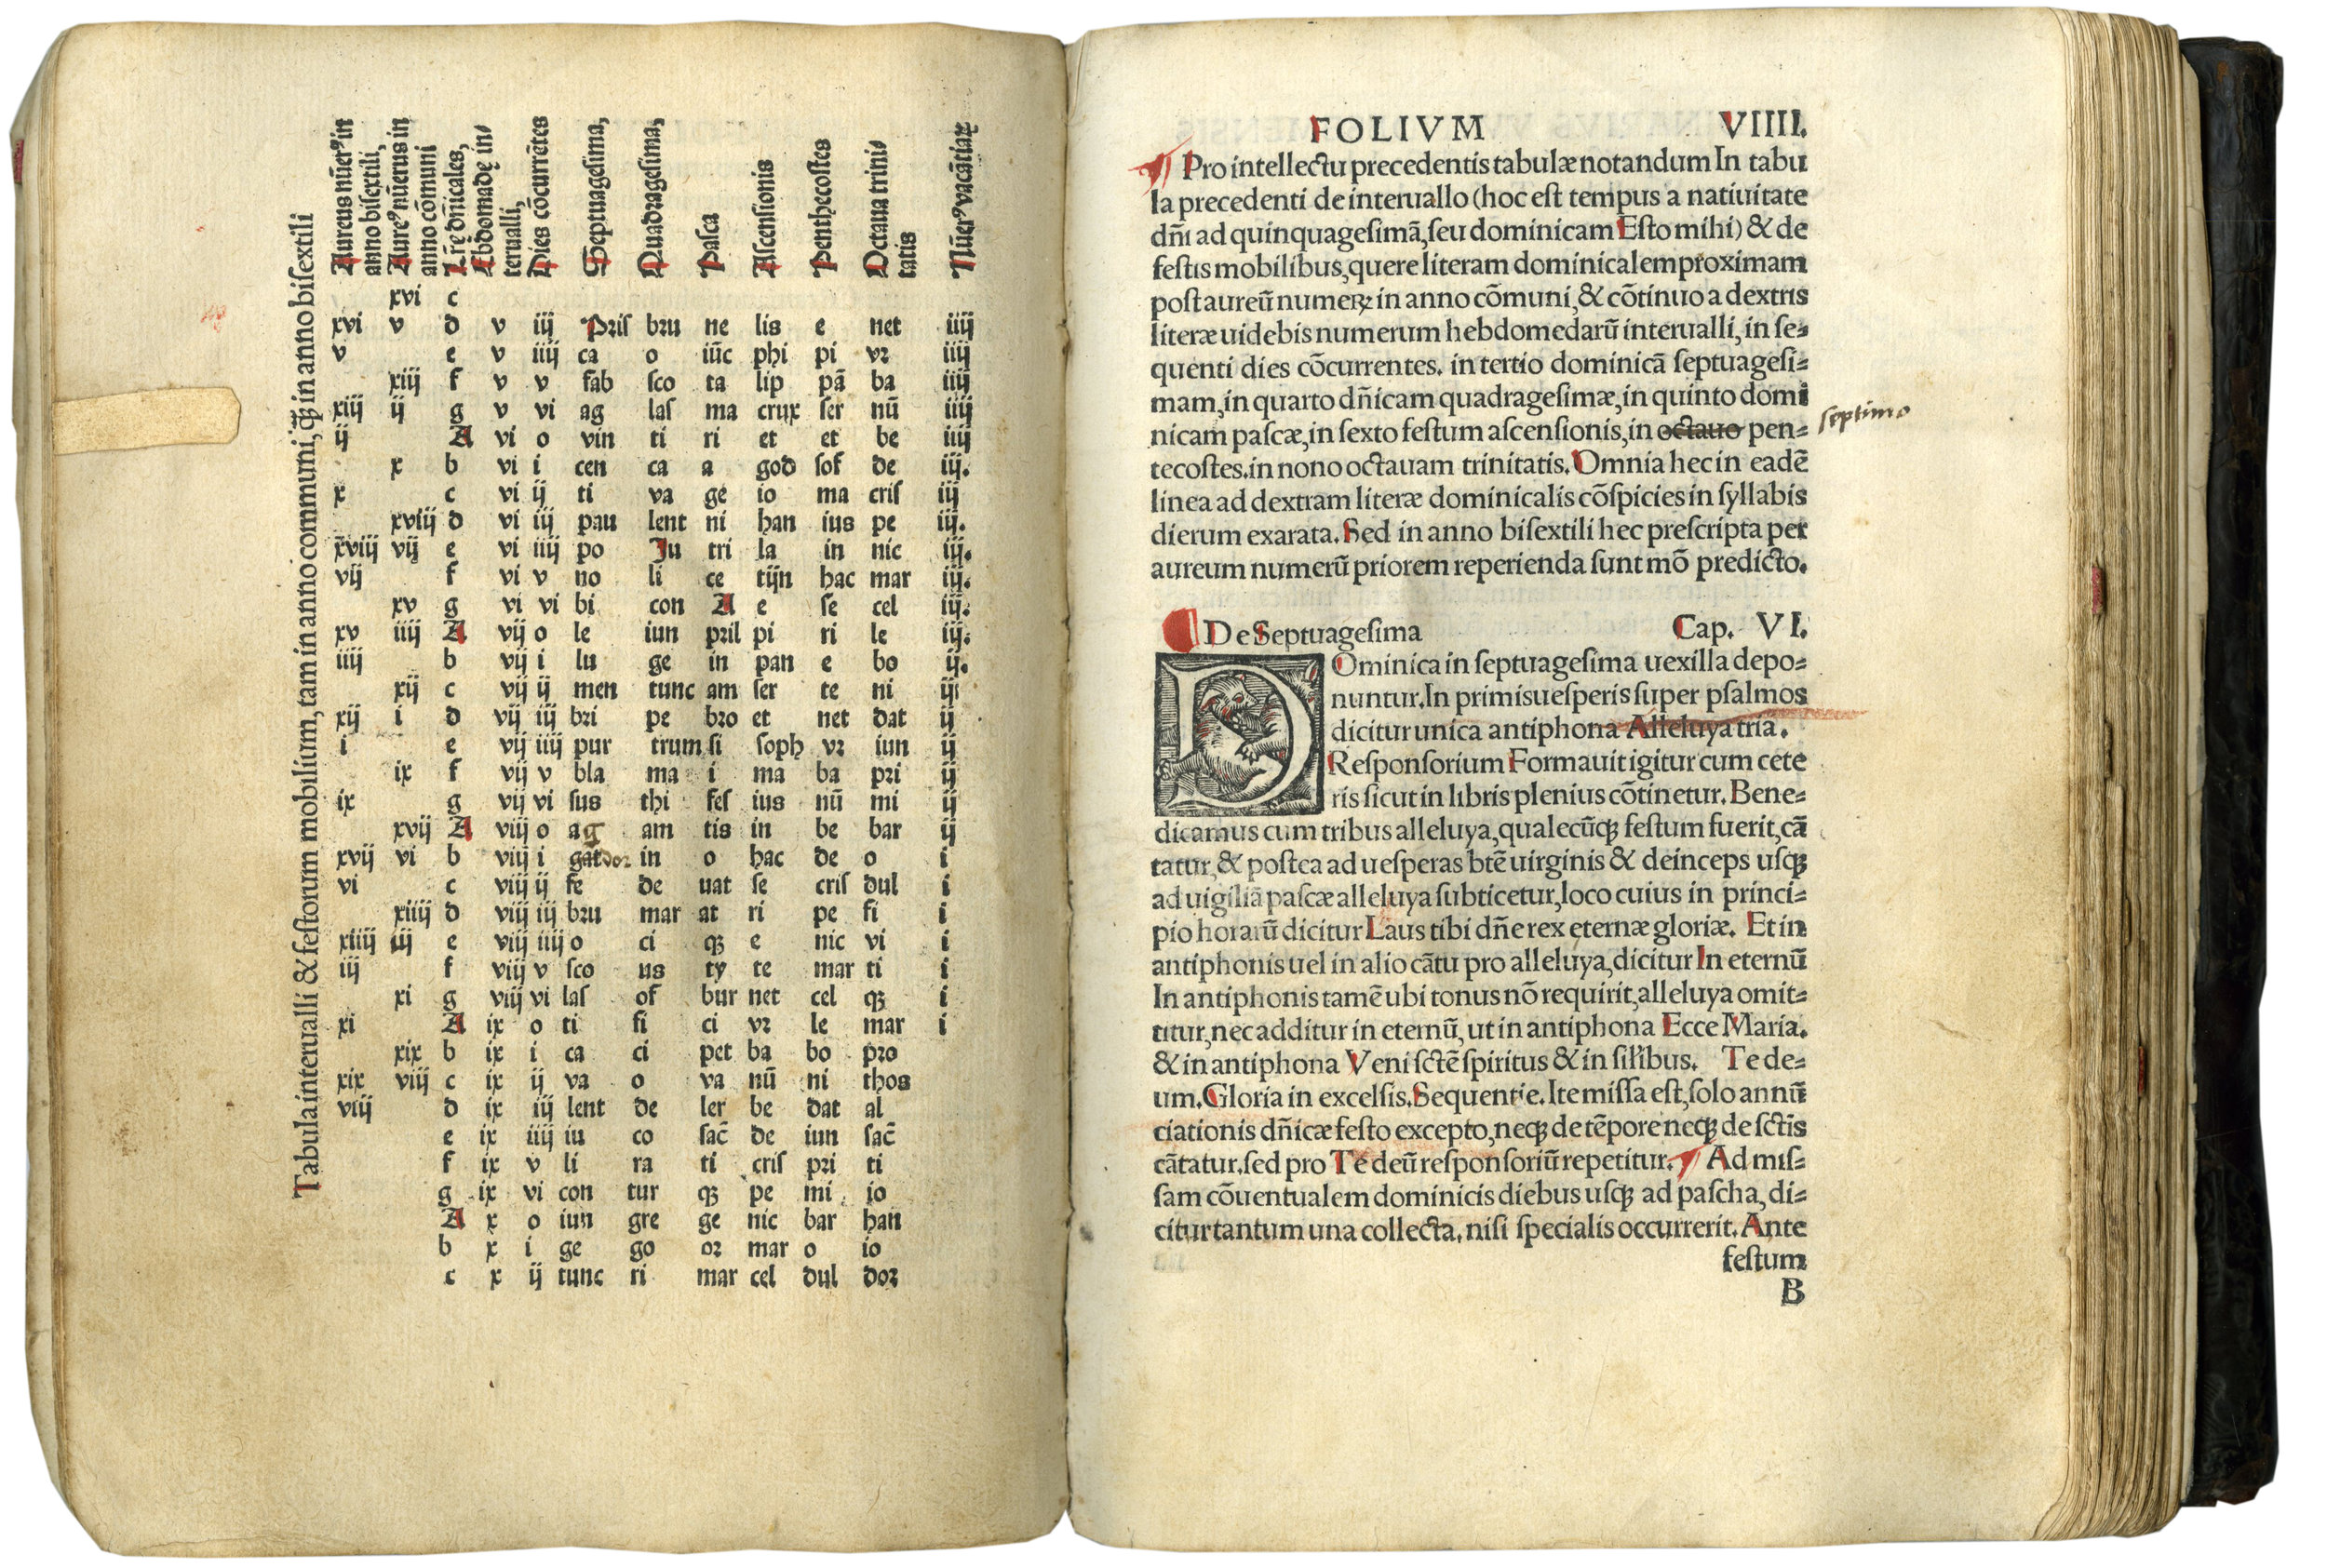 Tabula interualli & festorum mobilium, tam in anno communi, qꝫ in anno bisextili
Aureus nũerꝰ in
anno bisextili,
Aureꝰ nũerus in
anno cõmuni
Lr̃ę dñicales,
Ebdomadę in⸗
terualli,
Dies cõcurrẽtes
Septuagesima,
Quadragesima,
Pasca
Ascensionis
Penthecostes
Octaua trini⸗
tatis
Nũerꝰ vacãtiaꝝ
xvi c
xvi v d v iij Pꝛiſ bꝛu ne lis e net iiij
v e v iiij ca o iũc phi pi vꝛ iiij
xiij f v v fab ſco ta lip pã ba iiij
xiij ij g v vi ag laſ ma crux ſer nũ iiij
ij A vi o vin ti ri et et be iiij
x b vi i cen ca a god ſof de iij.
x c vi ij ti va ge io ma criſ iij
xviij d vi iij pau lent ni han ius pe iij.
xviij vij e vi iiij po Ju tri la in nic iij.
vij f vi v no li ce tijn hac mar iij.
xv g vi vi bi con A e ſe cel iij.
xv iiij A vij o le iun pꝛil pi ri le iij.
iiij b vij i lu ge in pan e bo ij.
xij c vij ij men tunc am ſer te ni ij
xij i d vij iij bꝛi pe bꝛo et net dat ij
i e vij iiij pur trum ſi ſoph vꝛ iun ij
ix f vij v bla ma i ma ba pꝛi ij
ix g vij vi ſus thi feſ ius nũ mi ij
xvij A viij o ag am tis in be bar ij
xvij vi b viij i gat doꝛ in o hac de o i
vi c viij ij fe de uat ſe criſ dul i
xiiij d viij iij bꝛu mar at ri pe fi i
xiiij iij e viij iiij o ci qꝫ e nic vi i
iij f viij v ſco us ty te mar ti i
xi g viij vi laſ of bur net cel qꝫ i
xi A ix o ti fi ci vꝛ le mar i
xix b ix i ca ci pet ba bo pꝛo
xix viij c ix ij va o va nũ ni thos
viij d ix iij lent de ler be dat al
e ix iiij iu co ſac̃ de iun ſac̃
f ix v li ra ti criſ pꝛi ti
g ix vi con tur qꝫ pe mi io
A x o iun gre ge nic bar han
b x i ge go oꝛ mar o io
c x ij tunc ri mar cel dul doꝛ
FOLIVM VIIII.
¶ Pro intellectu precedentis tabulæ notandum In tabu
la precedenti de interuallo (hoc est tempus a natiuitate
dñi ad quinquagesimã, seu dominicam Esto mihi) & de
festis mobilibus, quere literam dominicalem proximam
post aureũ numeꝝ in anno cõmuni, & cõtinuo a dextris
literæ uidebis numerum hebdomedarũ interualli, in se⸗
quenti dies cõcurrentes. in tertio dominicã septuagesi⸗
mam, in quarto dñicam quadragesimæ, in quinto domi
nicam pascæ, in sexto festum ascensionis, in octauo pen⸗
septimo
tecostes. in nono octauam trinitatis. Omnia hec in eadẽ
linea ad dextram literæ dominicalis cõspicies in syllabis
dierum exarata. Sed in anno bisextili hec prescripta per
aureum numerũ priorem reperienda sunt mõ predicto.
De Septuagesima Cap. VI.
DOminica in septuagesima uexilla depo⸗
nuntur. In primis uesperis super psalmos
dicitur unica antiphona Alleluya tria.
Responsorium Formauit igitur cum cete
ris sicut in libris plenius cõtinetur. Bene⸗
dicamus cum tribus alleluya, qualecũqꝫ festum fuerit, cã
tatur, & postea ad uesperas btẽ uirginis & deinceps usqꝫ
ad uigiliã pascæ alleluya subticetur, loco cuius in princi⸗
pio horarũ dicitur Laus tibi dñe rex eternæ gloriæ. Et in
antiphonis uel in alio cãtu pro alleluya, dicitur In eternũ
In antiphonis tamẽ ubi tonus nõ requirit, alleluya omit⸗
titur, nec additur in eternũ, ut in antiphona Ecce Maria.
& in antiphona Veni sctẽ spiritus & in silibus. Te de⸗
um. Gloria in excelsis. Sequentie. Ite missa est, solo annũ
ciationis dñicæ festo excepto, neqꝫ de tẽpore neqꝫ de sctis
cãtatur. sed pro Te deũ responsoriũ repetitur. ¶ Ad mis⸗
sam cõuentualem dominicis diebus usqꝫ ad pascha, di⸗
citur tantum una collecta, nisi specialis occurrerit. Ante
festum
B